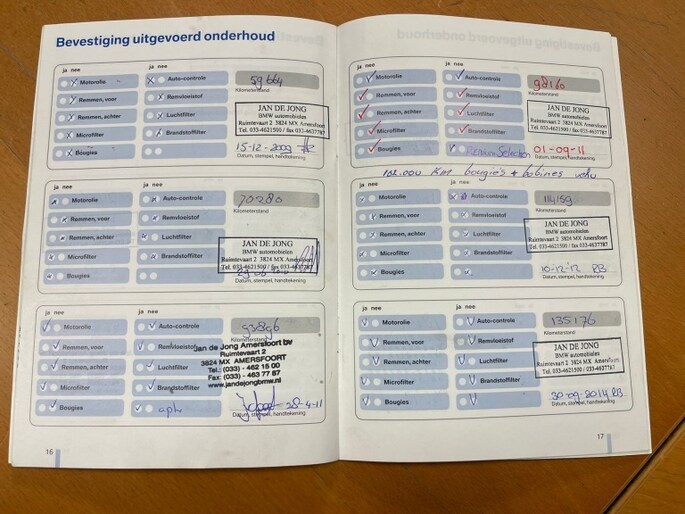 Bevestiging uitgevoerd onderhoud
ja nee ja nee
Motorolie Auto-controle 59664
Remmen, voor Remvloeistof Kilometerstand
Remmen, achter Luchtfilter
Microfilter Brandstoffilter
Bougies
JAN DE JONG
BMW automobielen
Ruimtevaart 2 3824 MX Amersfoort
Tel. 033-4621500 / fax 033-4637787
15-12-2009
Datum, stempel, handtekening
ja nee ja nee
Motorolie Auto-controle 70280
Remmen, voor Remvloeistof Kilometerstand
Remmen, achter Luchtfilter
Microfilter Brandstoffilter
Bougies
JAN DE JONG
BMW automobielen
Ruimtevaart 2 3824 MX Amersfoort
Tel. 033-4621500 / fax 033-4637787
Datum, stempel, handtekening
ja nee ja nee
Motorolie Auto-controle
Remmen, voor Remvloeistof Kilometerstand
Remmen, achter Luchtfilter
Microfilter Brandstoffilter
Bougies apk
Jan de Jong Amersfoort bv
Ruimtevaart 2
3824 MX AMERSFOORT
Tel.: (033) - 462 15 00
Fax: (033) - 463 77 87
www.jandejongbmw.nl
28-4-11
Datum, stempel, handtekening
16
ja nee ja nee
Motorolie Auto-controle 98160
Remmen, voor Remvloeistof Kilometerstand
Remmen, achter Luchtfilter
Microfilter Brandstoffilter
Bougies Premium Selection
JAN DE JONG
BMW automobielen
Ruimtevaart 2 3824 MX Amersfoort
Tel. 033-4621500 / fax 033-4637787
01-09-11
Datum, stempel, handtekening
102.000 Km bougie's + bobines
ja nee ja nee
Motorolie Auto-controle 114159
Remmen, voor Remvloeistof Kilometerstand
Remmen, achter Luchtfilter
Microfilter Brandstoffilter
Bougies
JAN DE JONG
BMW automobielen
Ruimtevaart 2 3824 MX Amersfoort
Tel. 033-4621500 / fax 033-4637787
10-12-12
Datum, stempel, handtekening
ja nee ja nee
Motorolie Auto-controle 135176
Remmen, voor Remvloeistof Kilometerstand
Remmen, achter Luchtfilter
Microfilter Brandstoffilter
Bougies
JAN DE JONG
BMW automobielen
Ruimtevaart 2 3824 MX Amersfoort
Tel. 033-4621500 / fax 033-4637787
30-09-2014
Datum, stempel, handtekening
17